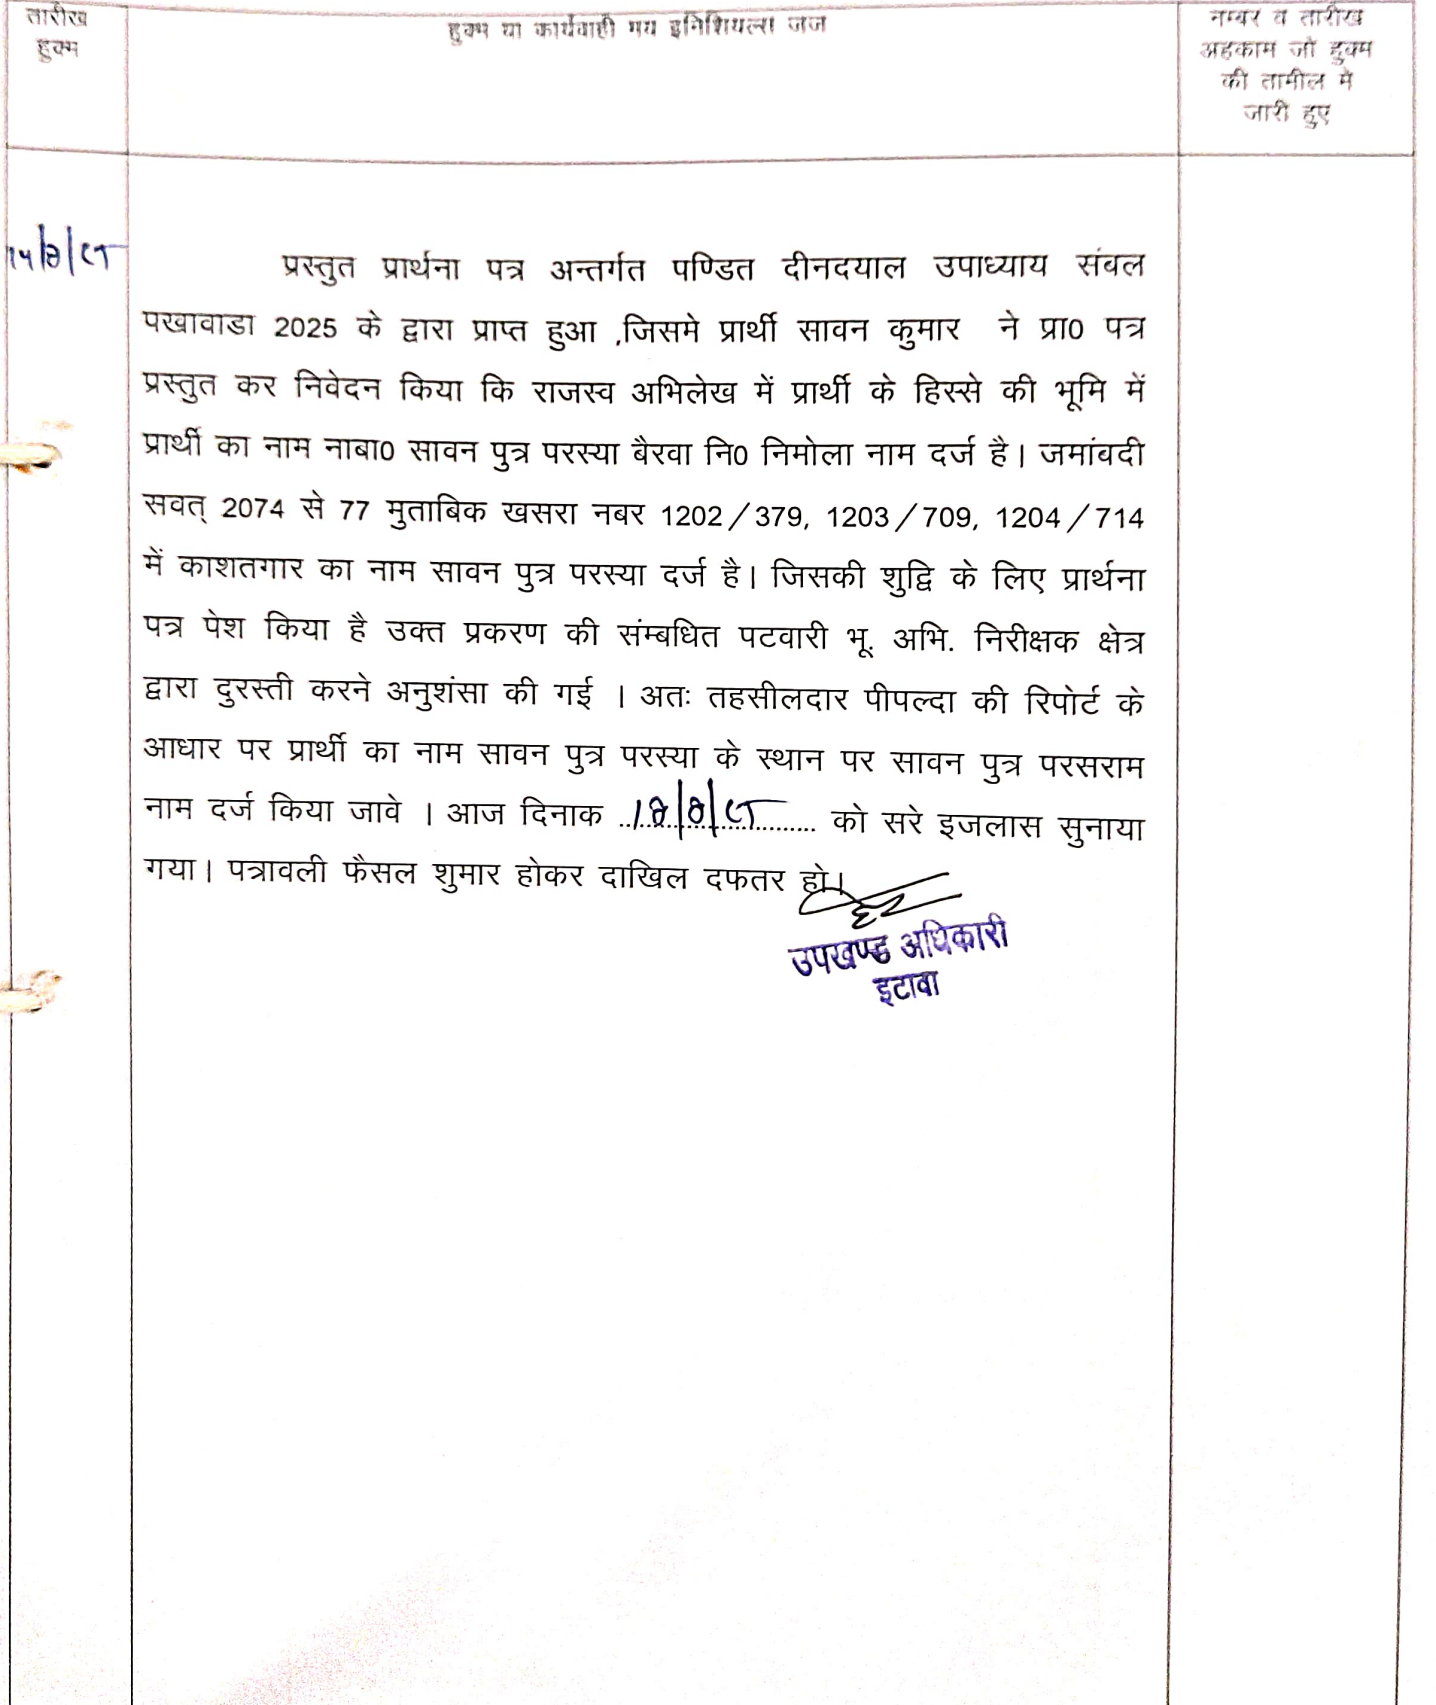 तारीख
हुक्म
हुक्म या कार्यवाही मय इनिशियल्स जज
नम्बर व तारीख
अहकाम जो हुक्म
की तामील में
जारी हुए
प्रस्तुत प्रार्थना पत्र अन्तर्गत पण्डित दीनदयाल उपाध्याय संबल
पखावाडा 2025 के द्वारा प्राप्त हुआ ,जिसमे प्रार्थी सावन कुमार ने प्रा0 पत्र
प्रस्तुत कर निवेदन किया कि राजस्व अभिलेख में प्रार्थी के हिस्से की भूमि में
प्रार्थी का नाम नाबा0 सावन पुत्र परस्या बैरवा नि0 निमोला नाम दर्ज है। जमांबदी
सवत् 2074 से 77 मुताबिक खसरा नबर 1202/379, 1203/709, 1204/714
में काशतगार का नाम सावन पुत्र परस्या दर्ज है। जिसकी शुद्वि के लिए प्रार्थना
पत्र पेश किया है उक्त प्रकरण की संम्बधित पटवारी भू. अभि. निरीक्षक क्षेत्र
द्वारा दुरस्ती करने अनुशंसा की गई । अतः तहसीलदार पीपल्दा की रिपोर्ट के
आधार पर प्रार्थी का नाम सावन पुत्र परस्या के स्थान पर सावन पुत्र परसराम
नाम दर्ज किया जावे । आज दिनाक .......................... को सरे इजलास सुनाया
गया। पत्रावली फैसल शुमार होकर दाखिल दफतर हो।
उपखण्ड अधिकारी
इटावा